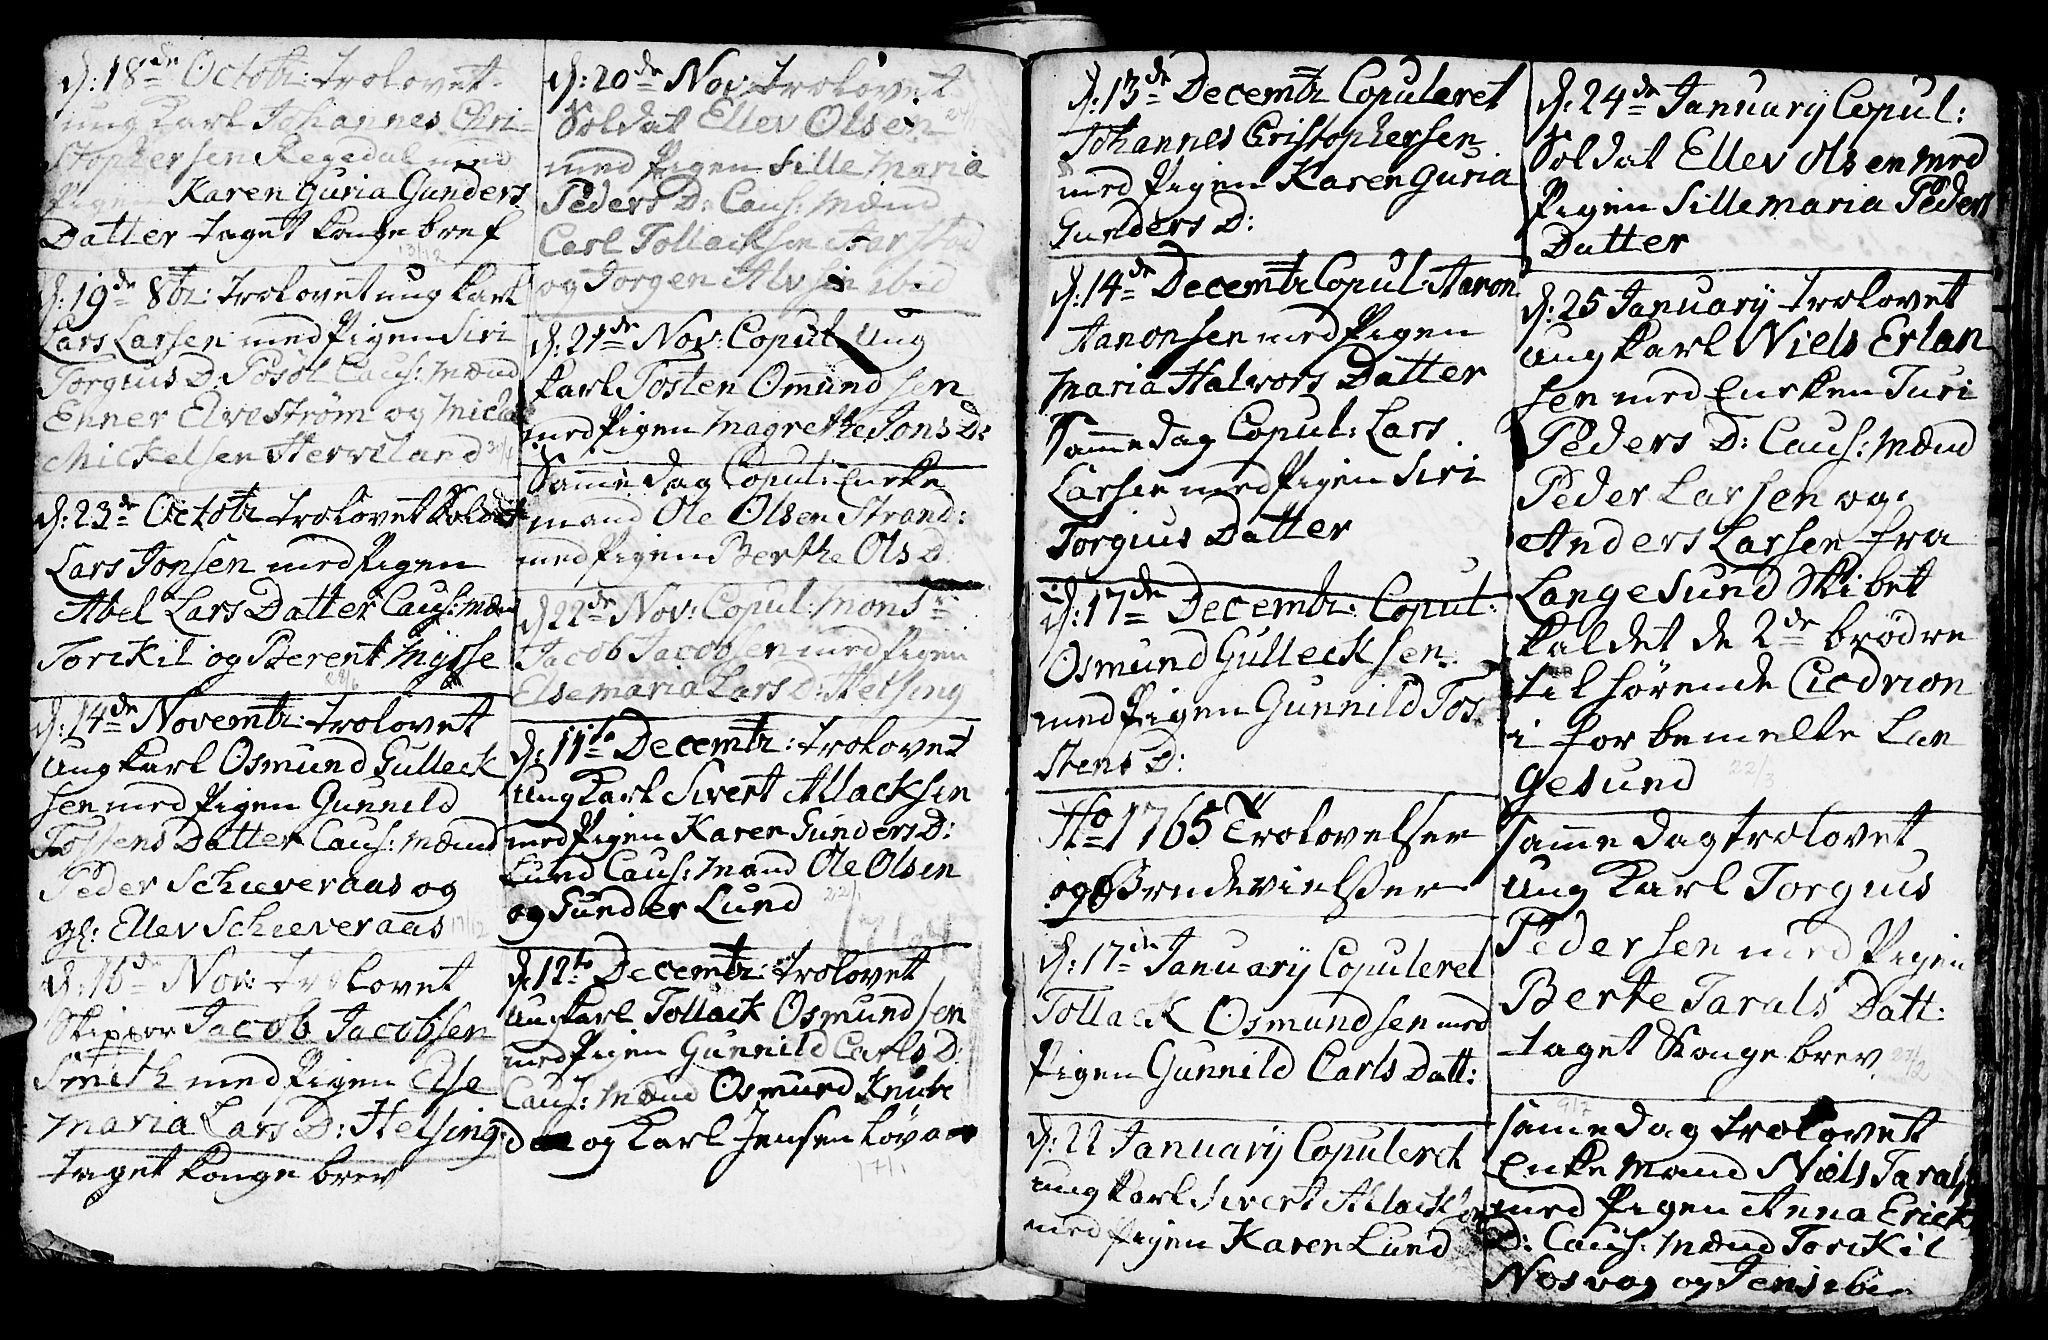 d: 18de Octobr: trolovet
ung Karl Johannes Chri
stophersen Regedal med
Pigen Karen Guria Gunders
Datter taget konge bref
13/12
d: 19de 8br: trolovet ung karl
Lars Larsen med Pigen Siri
Torgius D: Caus: Mænd
Enner Elvestrøm og Mickel
Mickelsen Herviland
d: 23de Octobr trolovet Soldat
Lars Jonsen med Pigen
Abel Lars Datter Caus: Mænd
Torckil og Berent Mysse
28/6
d: 14de Novembr: trolovet
Ung karl Osmund Gulleck
sen med Pigen Gunnild
Tostens Datter Caus: Mænd
Peder Scheveraas og
gl: Ellev Scheveraas 17/12
d: 16de Nov: trolovet
Skipper Jacob Jacobsen
Smith med Pigen Else
Maria Lars D: Helsing:
taget konge brev
d: 20de Nov: trolovet
Soldat Ellev Olsen 24/1
med Pigen Sille Maria
Peders D: Caus: Mænd
Carl Tollacksen Aarstad
og Jorgen Alvsen ibid
d: 21de Nov: Copul: Ung
karl Tosten Omundsen
med Pigen Magrethe Jons D:
Samme dag Copul: Enke
mand Ole Olsen Strand:
med Pigen Berthe Ols D
d: 22de Nov: Copul: Mons:
Jacob Jacobsen med Pigen
Else Maria Lars D: Helsing
d: 11te Decembr: trolovet
Ung Karl Sivert Atlacksen
med Pigen Karen Gunders D:
Lund Caus: Mænd Ole Olsen
og Gunder Lund 22/1
1764
d: 12te Decembr: trolovet
Ung karl Tollack Osmundsen
med Pigen Gunnild Carls D:
Caus: Mænd Osmund Knube
dal og Karl Jensen Løvaas
17/1
d: 13de Decembr Copuleret
Johannes Cristophersen
med Pigen Karen Guria
Gunders D:
d: 14de Decembr Copul: Aaron
Aanonsen med Pigen
Maria Halvors Datter
Samme dag Copul: Lars
Larsen med Pigen Siri
Torgius Datter
d: 17de Decembr: Copul:
Osmund Gullecksen
med Pigen Gunnild Tos
stens D:
Ao 1765 Trolovelser
og Brudevielser
d: 17de January Copuleret
Tollack Osmundsen med
Pigen Gunnild Carls Datt:
d: 22 January Copuleret
ung karl Sivert Atlacksen
med Pigen Karen Lund
d: 24de January Copul:
Soldat Ellev Olsen med
Pigen Sille Maria Peders
Datter
d: 25 January trolovet
ung karl Niels Erlan
sen med Encken Turi
Peders D: Caus: Mænd
Peder Larsen og
Anders Larsen fra
Langesund Skibet
kaldet de 2de brødre
tilhørende
i forbemelte Lan
gesund 22/3
samme dag trolovet
ung Karl Torgius
Pedersen med Pigen
Berte Tarals Datt:
taget Konge brev 27/2
9/7
samme dag trolovet
Enke Mand Niels Tarals
med Pigen Anna Ericks
D: Caus: Mænd Torckil
Nosvag og Jens ibi